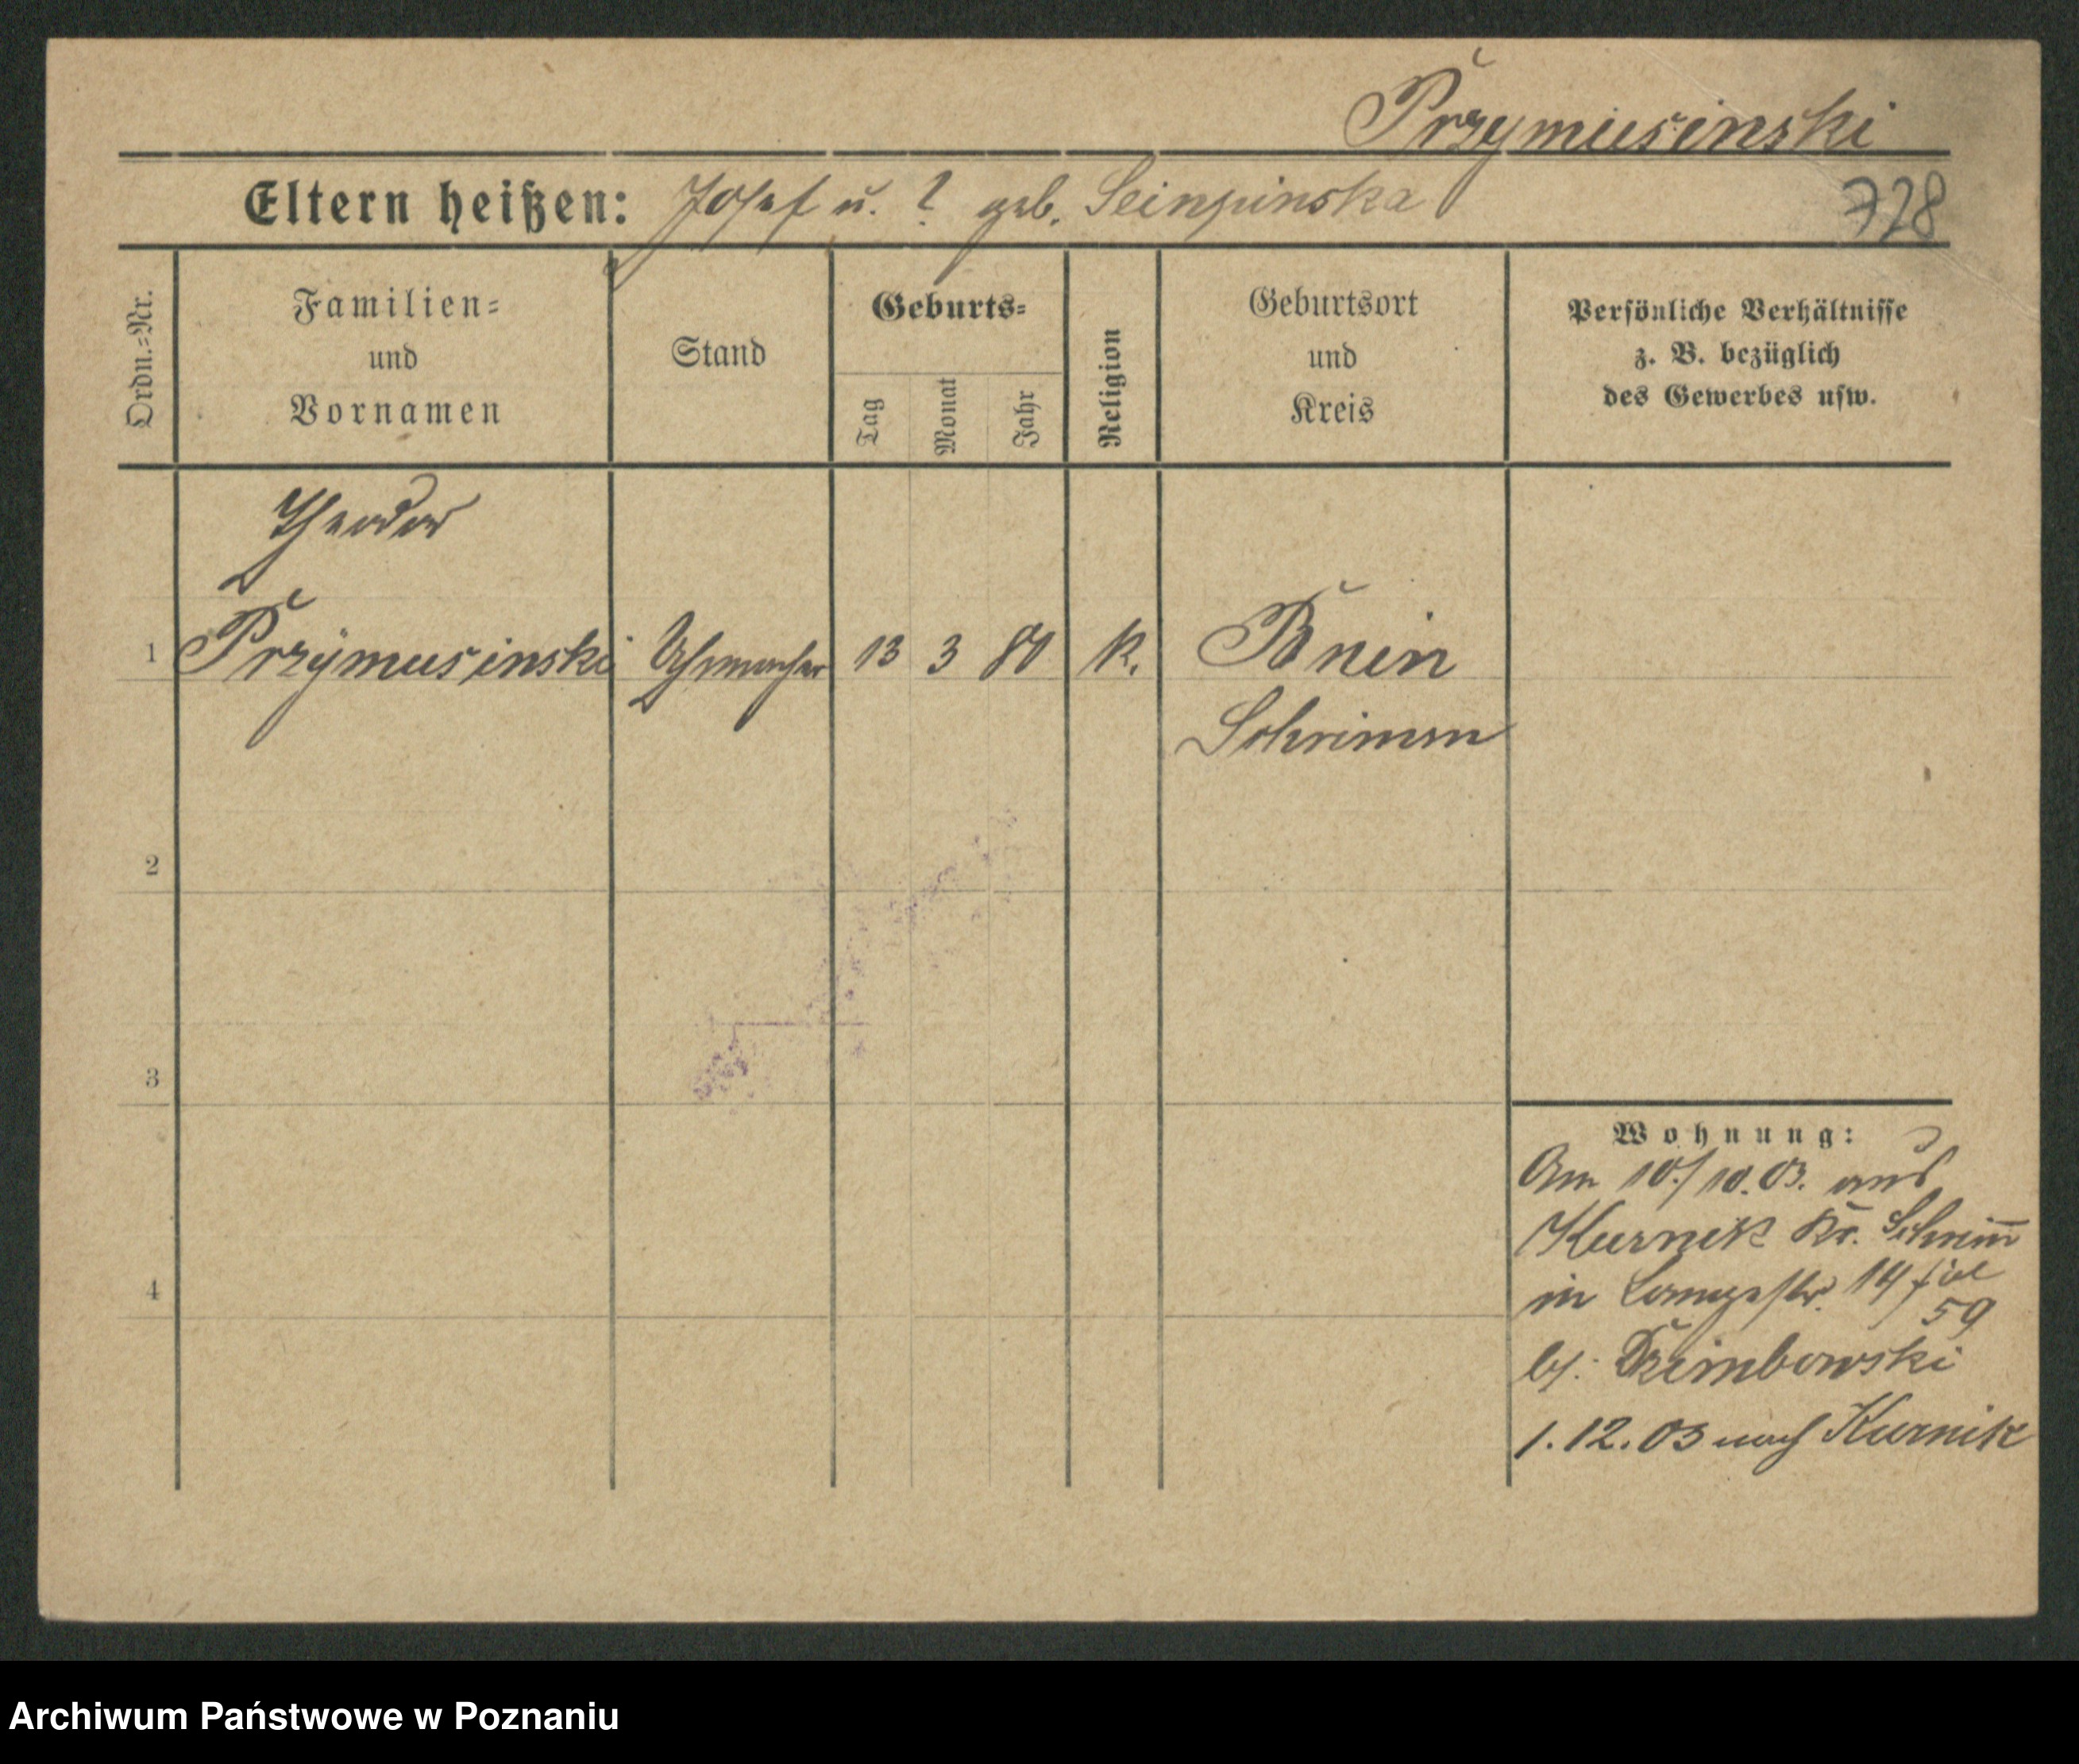 Przymusinski
Eltern heißen: Josef u. ? geb.
728
Ordn.-Nr.
Familien-
und
Vornamen
Stand
Geburts-
Tag
Monat
Jahr
Religion
Geburtsort
und
Kreis
Persönliche Verhältnisse
z. B. bezüglich
des Gewerbes usw.
Theodor
1 Przymusinski Uhrmacher 13 3 K. Bnin
Schrimm
2
3
4
Wohnung:
Am 10./10.03. aus
Kurnik Kr. Schrim̅
in Langestr. 14
59
bei Dzimbowski
1.12.03 nach Kurnik
Archiwum Państwowe w Poznaniu